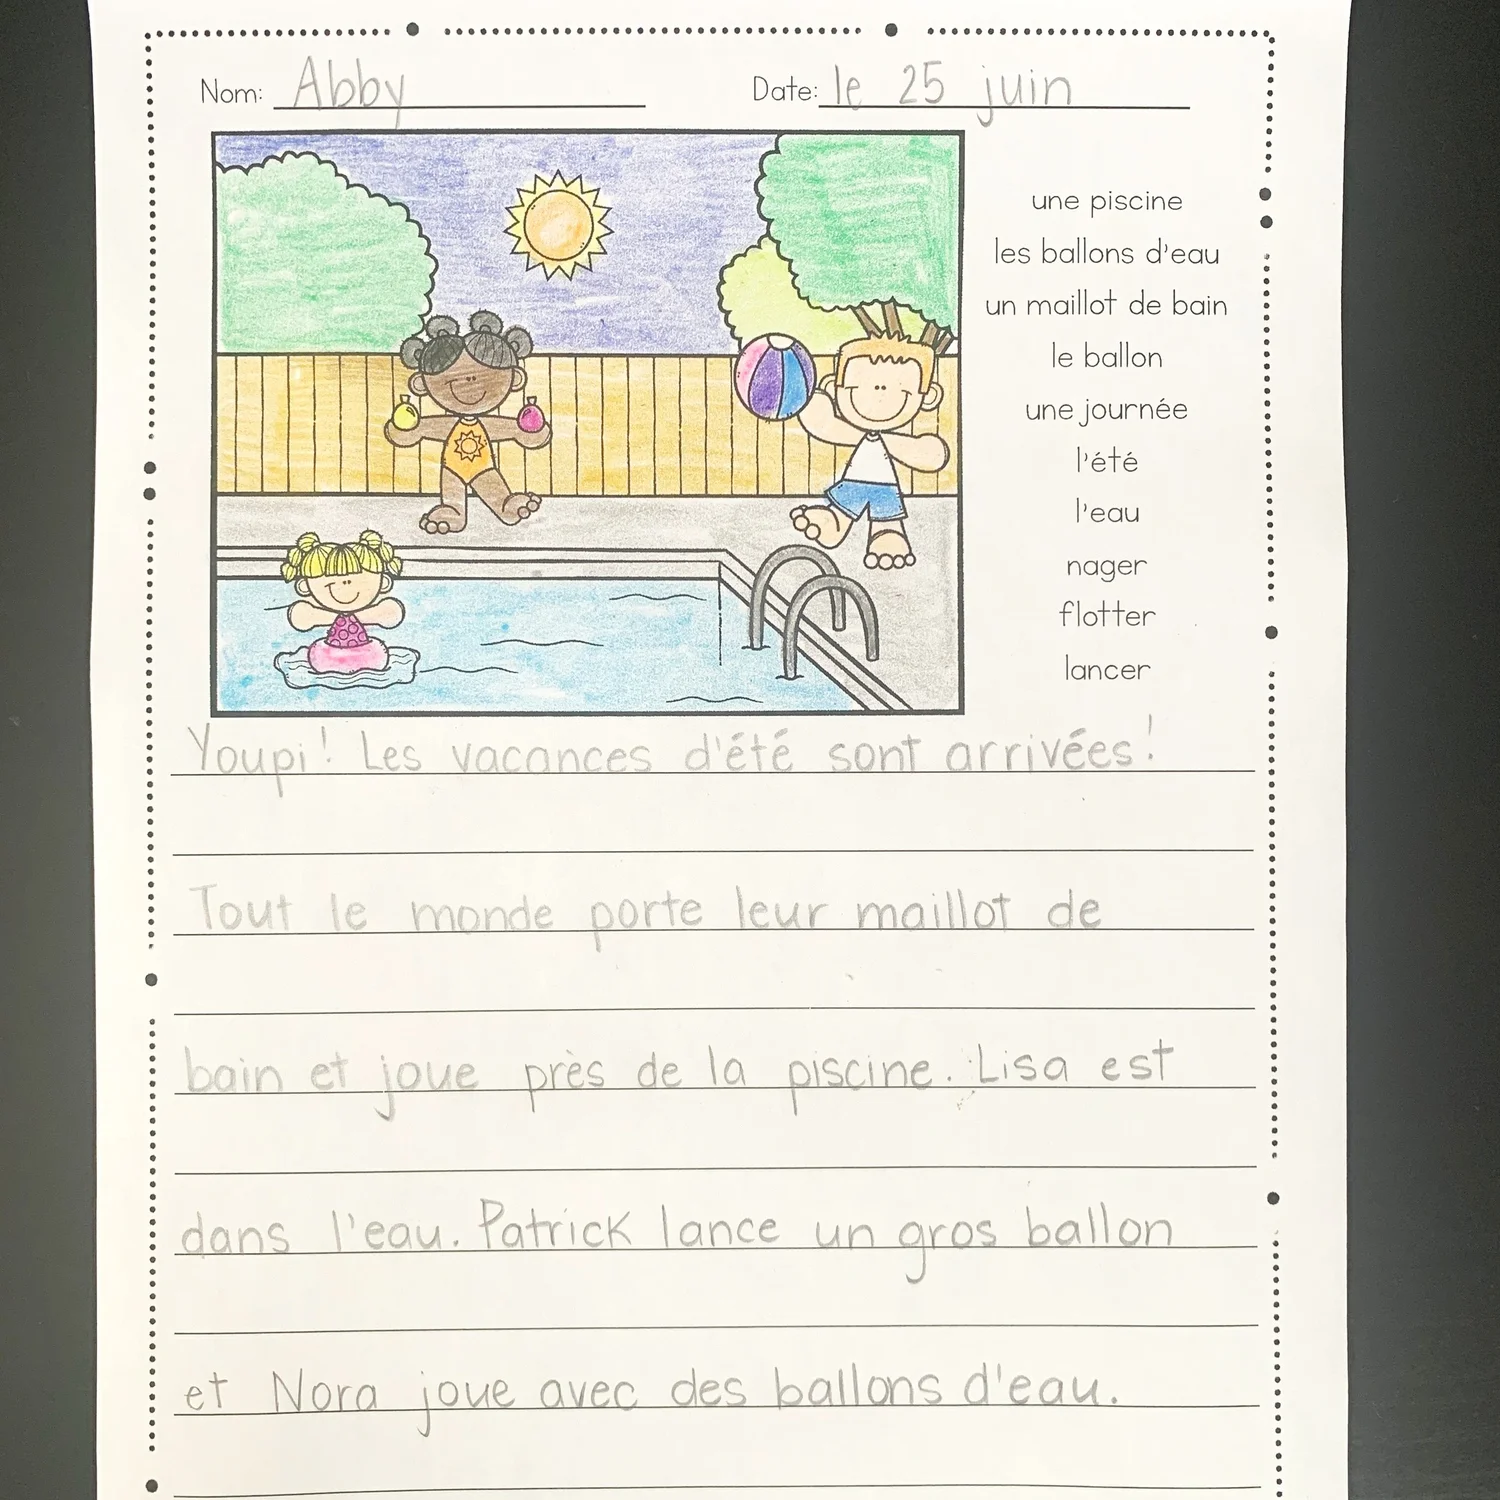 Nom: Abby Date: le 25 juin
une piscine
les ballons d'eau
un maillot de bain
le ballon
une journée
l'été
l'eau
nager
flotter
lancer
Youpi! Les vacances d'été sont arrivées!
Tout le monde porte leur maillot de
bain et joue près de la piscine. Lisa est
dans l'eau. Patrick lance un gros ballon
et Nora joue avec des ballons d'eau.